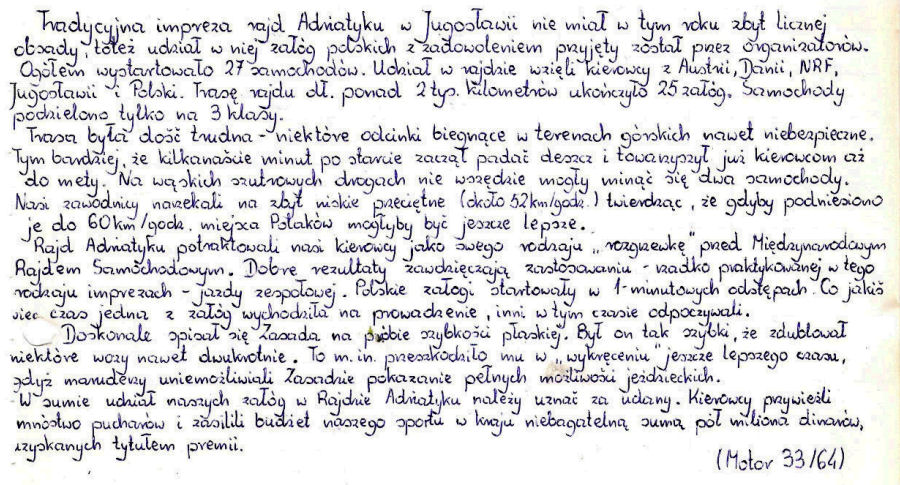 Tradycyjna impreza rajd Adriatyku w Jugosławii nie miał w tym roku zbyt licznej
obsady, toteż udział w niej załóg polskich z zadowoleniem przyjęty został przez organizatorów.
Ogółem wystartowało 27 samochodów. Udział w rajdzie wzięli kierowcy z Austrii, Danii, NRF,
Jugosławii i Polski. Trasę rajdu dł. ponad 2 tys. kilometrów ukończyło 25 załóg. Samochody
podzielono tylko na 3 klasy.
Trasa była dość trudna - niektóre odcinki biegnące w terenach górskich nawet niebezpieczne.
Tym bardziej, że kilkanaście minut po starcie zaczął padać deszcz i towarzyszył już kierowcom aż
do mety. Na wąskich szutrowych drogach nie wszędzie mogły minąć się dwa samochody.
Nasi zawodnicy narzekali na zbyt niskie przeciętne (około 52km/godz.) twierdząc, że gdyby podniesiono
je do 60km/godz. miejsca Polaków mogłyby być jeszcze lepsze.
Rajd Adriatyku potraktowali nasi kierowcy jako swego rodzaju „rozgrzewkę" przed Międzynarodowym
Rajdem Samochodowym. Dobre rezultaty zawdzięczają zastosowaniu - rzadko praktykowanej w tego
rodzaju imprezach - jazdy zespołowej. Polskie załogi startowały w 1-minutowych odstępach. Co jakiś
więc czas jedna z załóg wychodziła na prowadzenie, inni w tym czasie odpoczywali.
Doskonale spisał się Zasada na próbie szybkości płaskiej. Był on tak szybki, że zdublował
niektóre wozy nawet dwukrotnie. To m.in. przeszkodziło mu w „wykręceniu" jeszcze lepszego czasu,
gdyż maruderzy uniemożliwiali Zasadzie pokazanie pełnych możliwości jeździeckich.
W sumie udział naszych załóg w Rajdzie Adriatyku należy uznać za udany. Kierowcy przywieźli
mnóstwo pucharów i zasilili budżet naszego sportu w kraju niebagatelną sumą pół miliona dinarów,
uzyskanych tytułem premii.
(Motor 33/64)